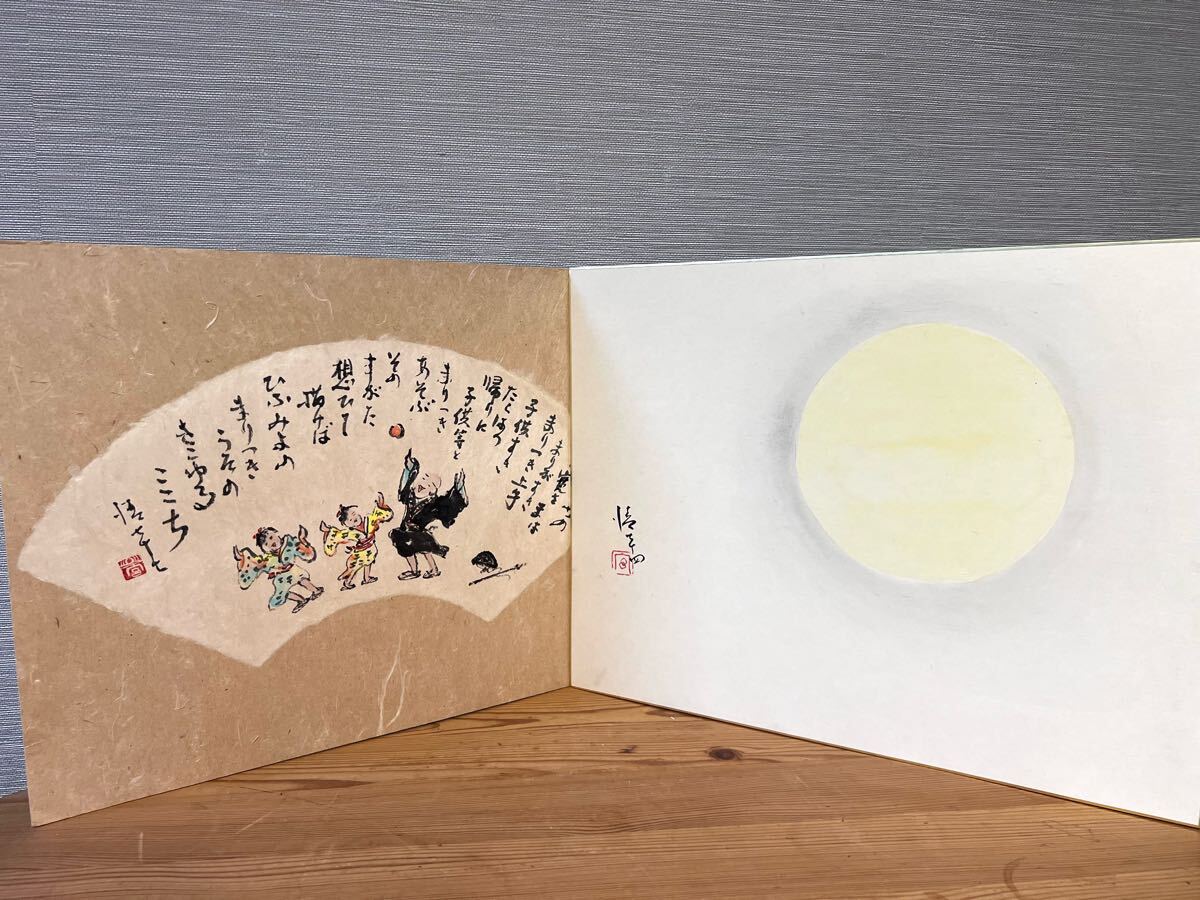 まりがすきは
まりつき上手
子供すき
たくはつ
帰りに
子供等と
まりつき
あそぶ
その
すがた
想ひて
描けば
ひふみよの
まりつき
うたの
きこゆる
ここち